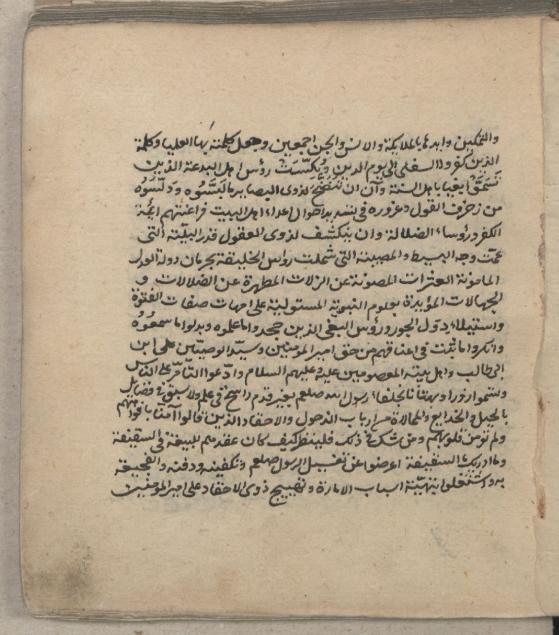 والتمكين وايدها بالملائكة والانس والجن اجمعين وجعل كلمته بها العليا وكلمة
الذين كفروا السفلى الى يوم الدين ونكست رؤس اهل البدعة الذين
تسموا بغيا باهل السنة وآن ان يتضح لذوى البصاير ما لبسوه ودلسوه
من زخرف القول وغروره فى احوال اعداء اهل البيت فراعنتهم ائمة
الكفر ورؤساء الضلالة وان ينكشف لذوى العقول قدر البلية التى
عمت وجه البسيط والمصيبة التى شملت رؤس الخليقة بحرمان دولة العدل
المأمونة العثرات المصونة عن الزلات المطهرة عن الضلالات و
الجهالات المؤيدة بعلوم النبوية المستولية على امهات صفات الفتوة
واستيلاء دول الجور ورؤس البغى الذين جحدوا ما علموه وبدلوا ما سمعوه
وانكروا ما ثبت فى اعناقهم من حق امير المؤمنين وسيد الوصيين على ابن
ابى طالب واهل بيته المعصومين عليه وعليهم السلام وادعوا التأمر على الناس
وتسموا زورا وبهتانا بخلفاء رسول الله صلعم بغير قدم راسخ فى علم ولا سبق فى فضايل
بالحيل والخدايع والممالاة من ارباب الذحول والاحقاد الذين قالوا آمنا بافواههم
ولم تؤمن قلوبهم ومن شك فى ذلك فلينظر كيف كان عقدهم للبيعة فى السقيفة
وما ادريك ما السقيفة اعرضوا عن تغسيل الرسول صلعم وتكفينه ودفنه والفجيعة
به واشتغلوا بتهيئة اسباب الامارة وتهييج ذوى الاحقاد على امير المؤمنين